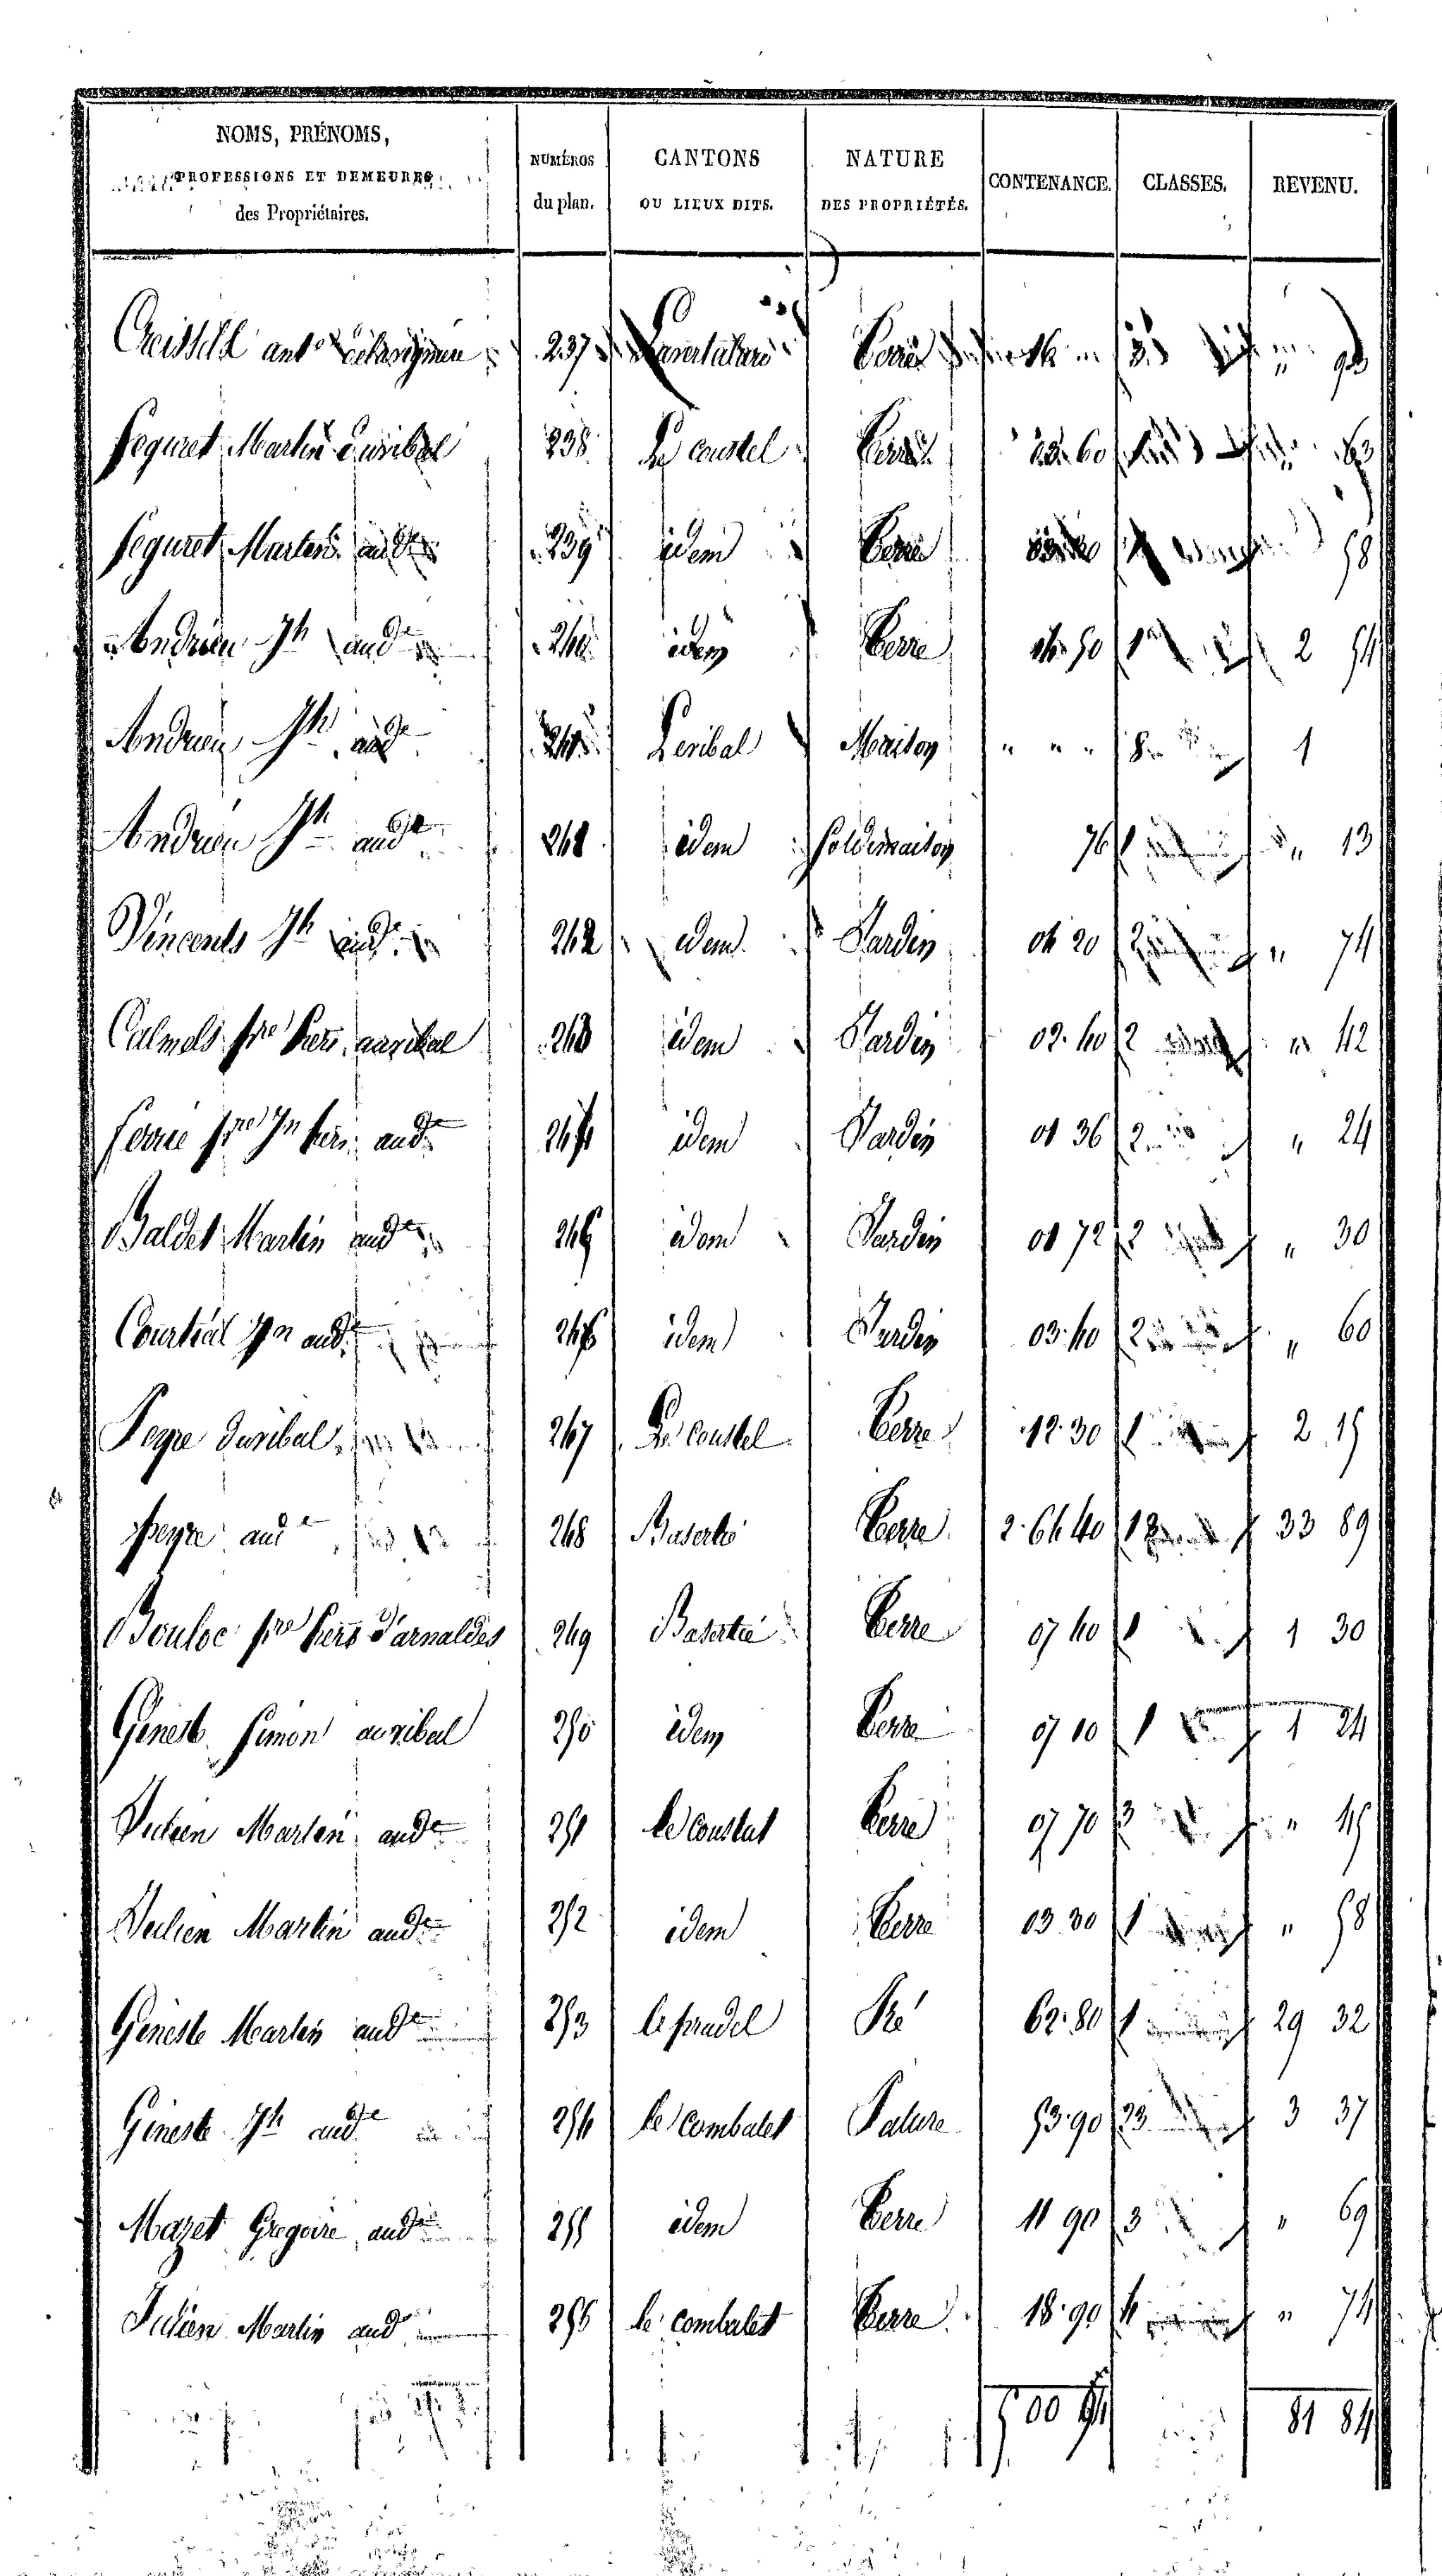 NOMS, PRÉNOMS, PROFESSIONS ET DEMEURES des Propriétaires. NUMÉROS du plan. CANTONS OU LIEUX DITS. NATURE DES PROPRIÉTÉS. CONTENANCE. CLASSES. REVENU.
237 Terre
Seguret Martin 238 Le coustel Terre 60 63
Seguret Martin aud^e 239 idem Terre 58
Andrieu J^h aud^e 240 idem Terre 50 1 2 54
Andrieu J^h aud^e Leribal Maison " " " 8 1
Andrieu J^h aud^e 241 idem Sol de maison 76 1 " 13
Vincents J^h aud^e 242 idem Jardin 04 20 2 " 74
Calmels p^re hers auribal 243 idem Jardin 02.40 2 " 42
Ferrié p^re Jn hers aud^e 244 idem Jardin 01 36 2 " 24
Baldet Martin aud^e 245 idem Jardin 01 72 2 " 30
Courtial Jn aud^e 246 idem Jardin 03.40 2 " 60
Peyre Duribal 247 Le Coustel Terre 12.30 1 2 15
Peyre aud^e 248 Terre 2.64 40 33 89
Bouloc p^re hers d'arnaldes 249 Terre 07 40 1 1 30
Geneste Simon auribal 250 idem Terre 07 10 1 1 24
Julien Martin aud^e 251 Terre 07 70 3 " 45
Julien Martin aud^e 252 idem Terre 03 30 1 " 58
Geneste Martin aud^e 253 le pradel Pré 62.80 1 29 32
Geneste J^h aud^e 254 le Combalet Pature 53.90 3 37
Mazet Gregoire aud^e 255 idem Terre 11 90 3 " 69
Julien Martin aud^e 256 le Combalet Terre 18.90 4 " 74
81 84